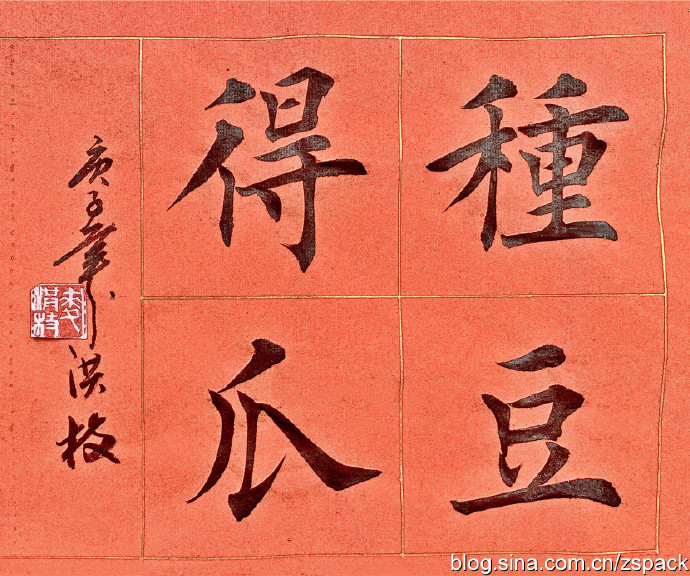 種豆
得瓜
庚子
洪枝
blog.sina.com.cn/zspack